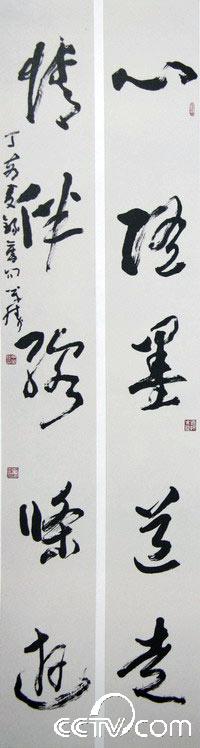 心随墨道走
情伴线条游
丁亥夏录旧句
cctv.com